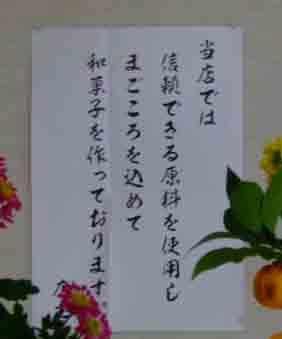 当店では
信頼できる原料を使用し
まごころを込めて
和菓子を作っております。